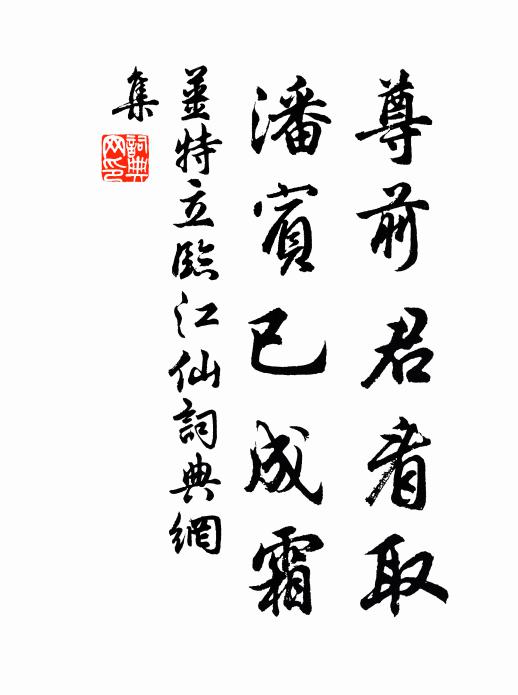 尊前君看取
潘賓已成霜
姜特立臨江仙詞典網
集
詞典
网印